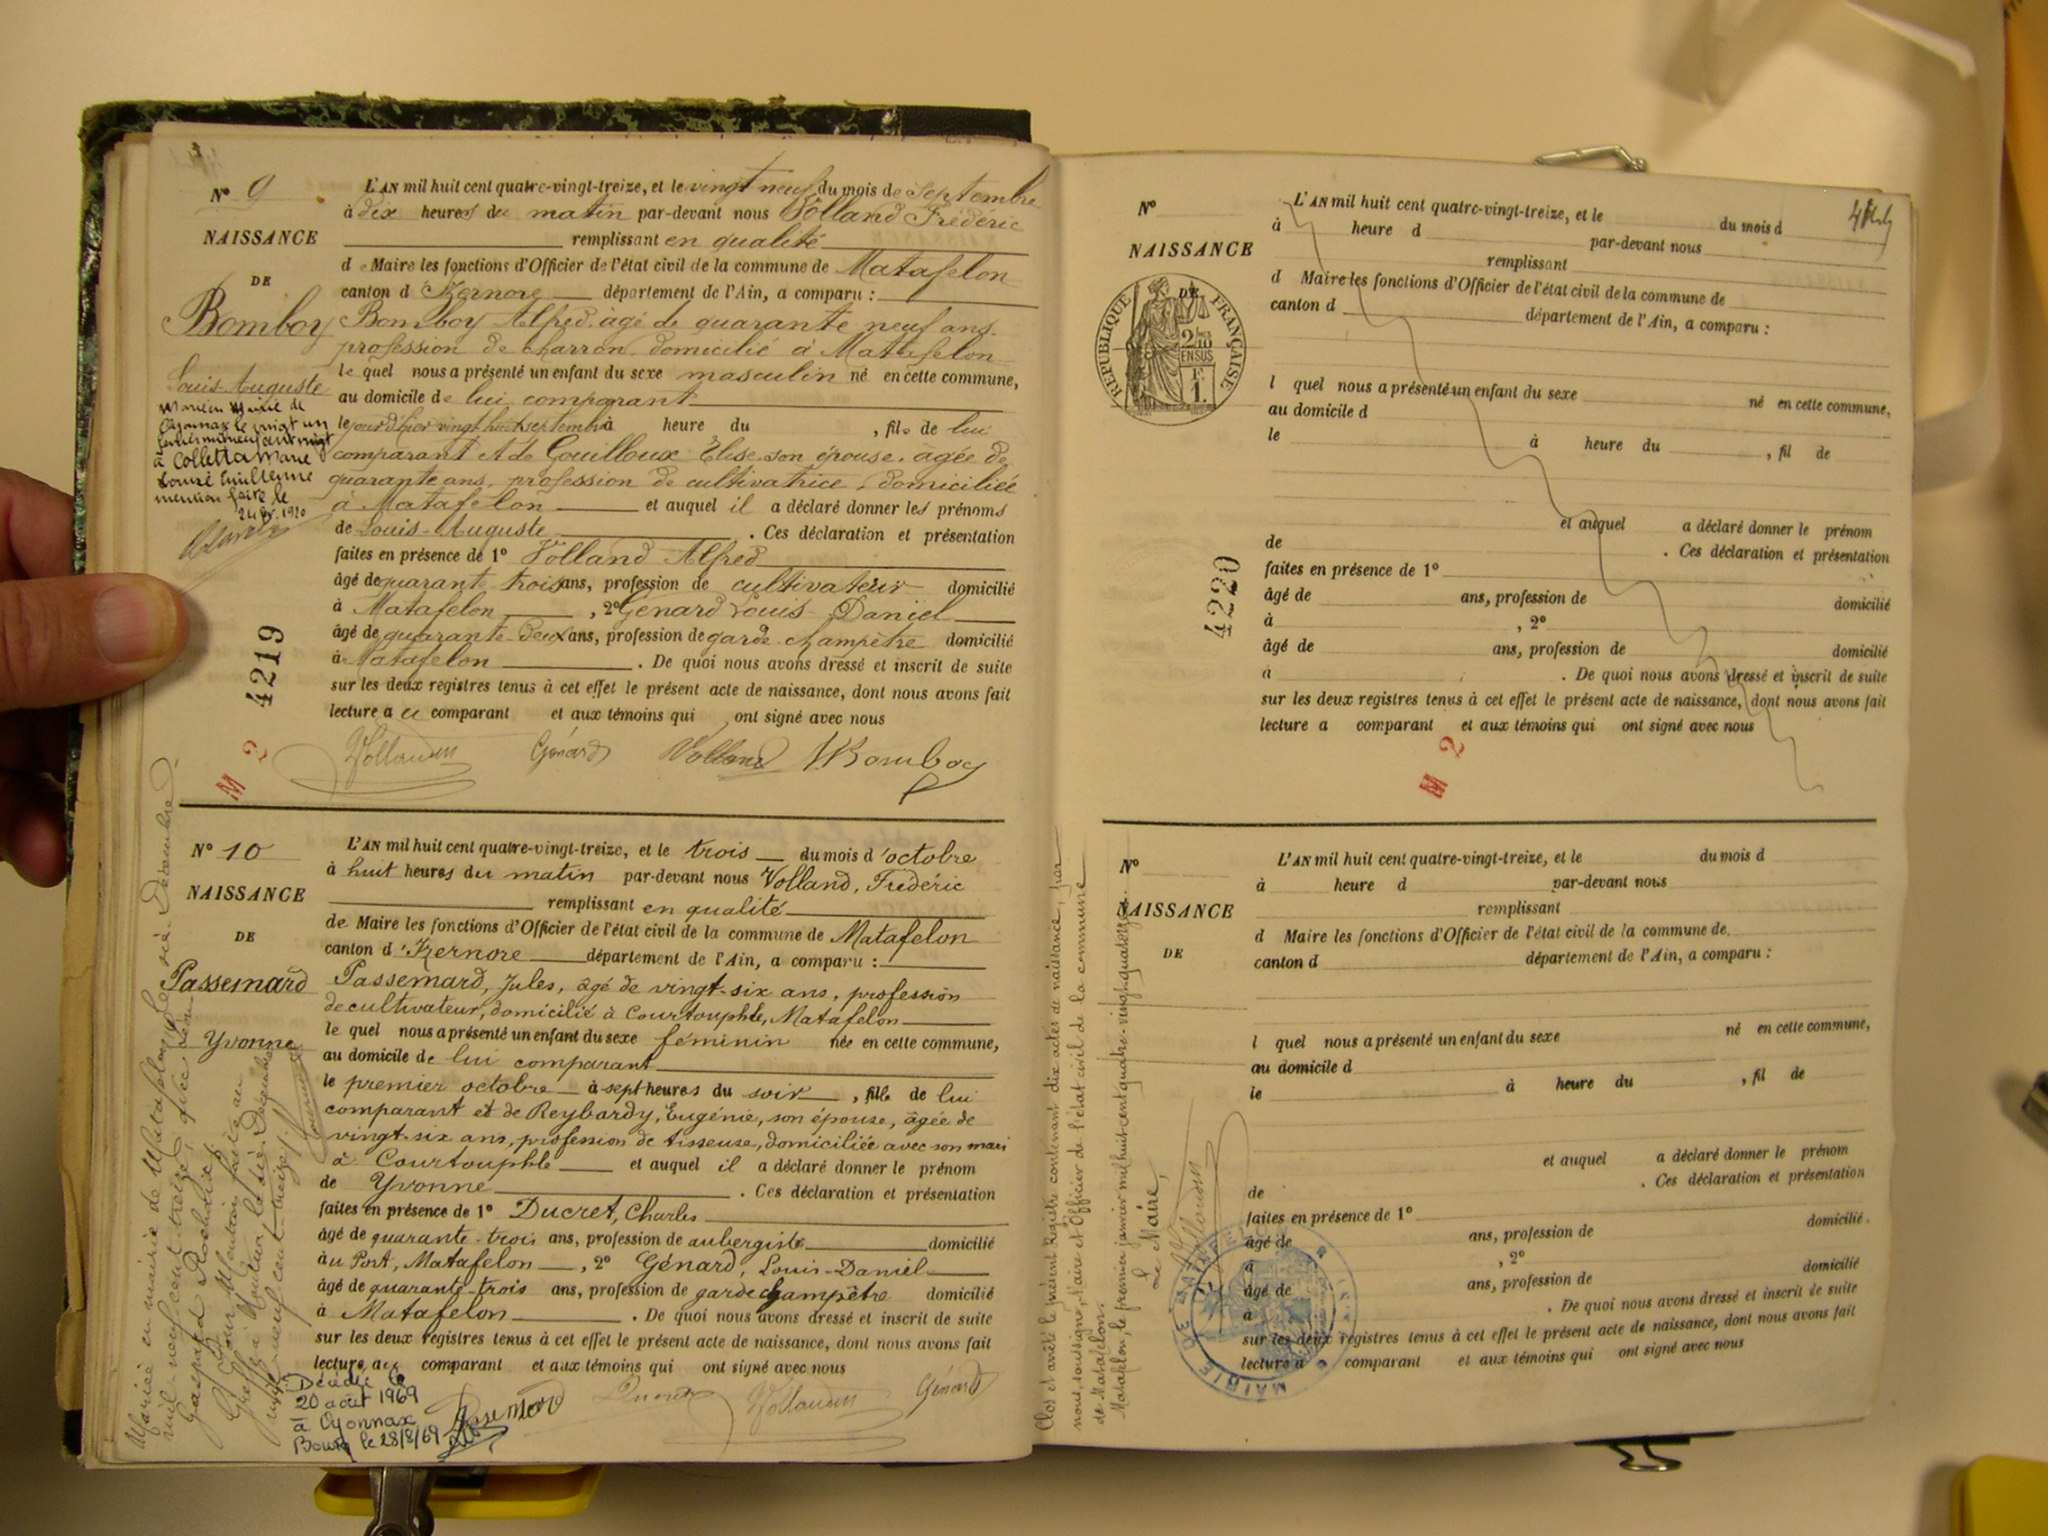 N° 9
NAISSANCE
DE
Bomboy
Louis Auguste
Marié en Mairie de
Oyonnax le vingt un
mil neuf cent vingt
à Colletta Marie
Louise
mention faite le
1920
4219
M 2
L'AN mil huit cent quatre-vingt-treize, et le vingt neuf du mois de Septembre
à dix heures du matin par-devant nous Volland Frédéric
remplissant en qualité
de Maire les fonctions d'Officier de l'état civil de la commune de Matafelon
canton d'Izernore département de l'Ain, a comparu :
Bomboy Alfred, âgé de quarante neuf ans,
profession de charron domicilié à Matafelon
lequel nous a présenté un enfant du sexe masculin né en cette commune,
au domicile de lui comparant
le jour d'hier vingt huit septembre à heure du , fils de lui
comparant et de Gouilloux Elise son épouse, agée de
quarante ans, profession de cultivatrice, domiciliée
à Matafelon et auquel il a déclaré donner les prénoms
de Louis-Auguste . Ces déclaration et présentation
faites en présence de 1° Volland Alfred
âgé de quarante trois ans, profession de cultivateur domicilié
à Matafelon , 2° Génard Louis Daniel
âgé de quarante-deux ans, profession de garde champêtre domicilié
à Matafelon . De quoi nous avons dressé et inscrit de suite
sur les deux registres tenus à cet effet le présent acte de naissance, dont nous avons fait
lecture au comparant et aux témoins qui ont signé avec nous
Vollandm Génard Volland ABomboy
N° 10
NAISSANCE
DE
Passemard
Yvonne
L'AN mil huit cent quatre-vingt-treize, et le trois du mois d'octobre
à huit heures du matin par-devant nous Volland, Frédéric
remplissant en qualité
de Maire les fonctions d'Officier de l'état civil de la commune de Matafelon
canton d'Izernore département de l'Ain, a comparu :
Passemard, Jules, âgé de vingt-six ans, profession
de cultivateur, domicilié à Courtouphle, Matafelon
lequel nous a présenté un enfant du sexe féminin née en cette commune,
au domicile de lui comparant
le premier octobre à sept heures du soir , fille de lui
comparant et de Reybardy, Eugénie, son épouse, âgée de
vingt-six ans, profession de tisseuse, domiciliée avec son mari
à Courtouphle et auquel il a déclaré donner le prénom
de Yvonne . Ces déclaration et présentation
faites en présence de 1° Ducret, Charles
âgé de quarante-trois ans, profession de aubergiste domicilié
à u Port, Matafelon , 2° Génard, Louis-Daniel
âgé de quarante-trois ans, profession de garde champêtre domicilié
à Matafelon . De quoi nous avons dressé et inscrit de suite
sur les deux registres tenus à cet effet le présent acte de naissance, dont nous avons fait
lecture au comparant et aux témoins qui ont signé avec nous
Passemard Ducret Vollandm Génard
Mariée en mairie de Matafelon le six Décembre
mil-neuf-cent-treize, avec
Gaspard Rochaix
Pour Mention faite au
Greffe à Nantua le dix Décembre
mil neuf cent-treize
Décédée le
20 août 1969
à Oyonnax
Bourg le 28/8/69
N°
NAISSANCE
DE
RÉPUBLIQUE FRANÇAISE
2/10
EN SUS
F.
1.
4220
M 2
L'AN mil huit cent quatre-vingt-treize, et le du mois d
à heure d par-devant nous
remplissant
d Maire les fonctions d'Officier de l'état civil de la commune de
canton d département de l'Ain, a comparu :
l quel nous a présenté un enfant du sexe né en cette commune,
au domicile d
le à heure du , fil de
et auquel a déclaré donner le prénom
de . Ces déclaration et présentation
faites en présence de 1°
âgé de ans, profession de domicilié
à , 2°
âgé de ans, profession de domicilié
à . De quoi nous avons dressé et inscrit de suite
sur les deux registres tenus à cet effet le présent acte de naissance, dont nous avons fait
lecture a comparant et aux témoins qui ont signé avec nous
Clos et arrêté le présent Registre contenant dix actes de naissance, par
nous, soussigné, Maire et Officier de l'état civil de la commune
de Matafelon.
Matafelon, le premier janvier mil huit cent quatre-vingt-quatorze.
Le Maire,
Vollandm
MAIRIE DE MATAFELON
AIN
N°
NAISSANCE
DE
L'AN mil huit cent quatre-vingt-treize, et le du mois d
à heure d par-devant nous
remplissant
d Maire les fonctions d'Officier de l'état civil de la commune de
canton d département de l'Ain, a comparu :
l quel nous a présenté un enfant du sexe né en cette commune,
au domicile d
le à heure du , fil de
et auquel a déclaré donner le prénom
de . Ces déclaration et présentation
faites en présence de 1°
âgé de ans, profession de domicilié
à , 2°
âgé de ans, profession de domicilié
à . De quoi nous avons dressé et inscrit de suite
sur les deux registres tenus à cet effet le présent acte de naissance, dont nous avons fait
lecture a comparant et aux témoins qui ont signé avec nous